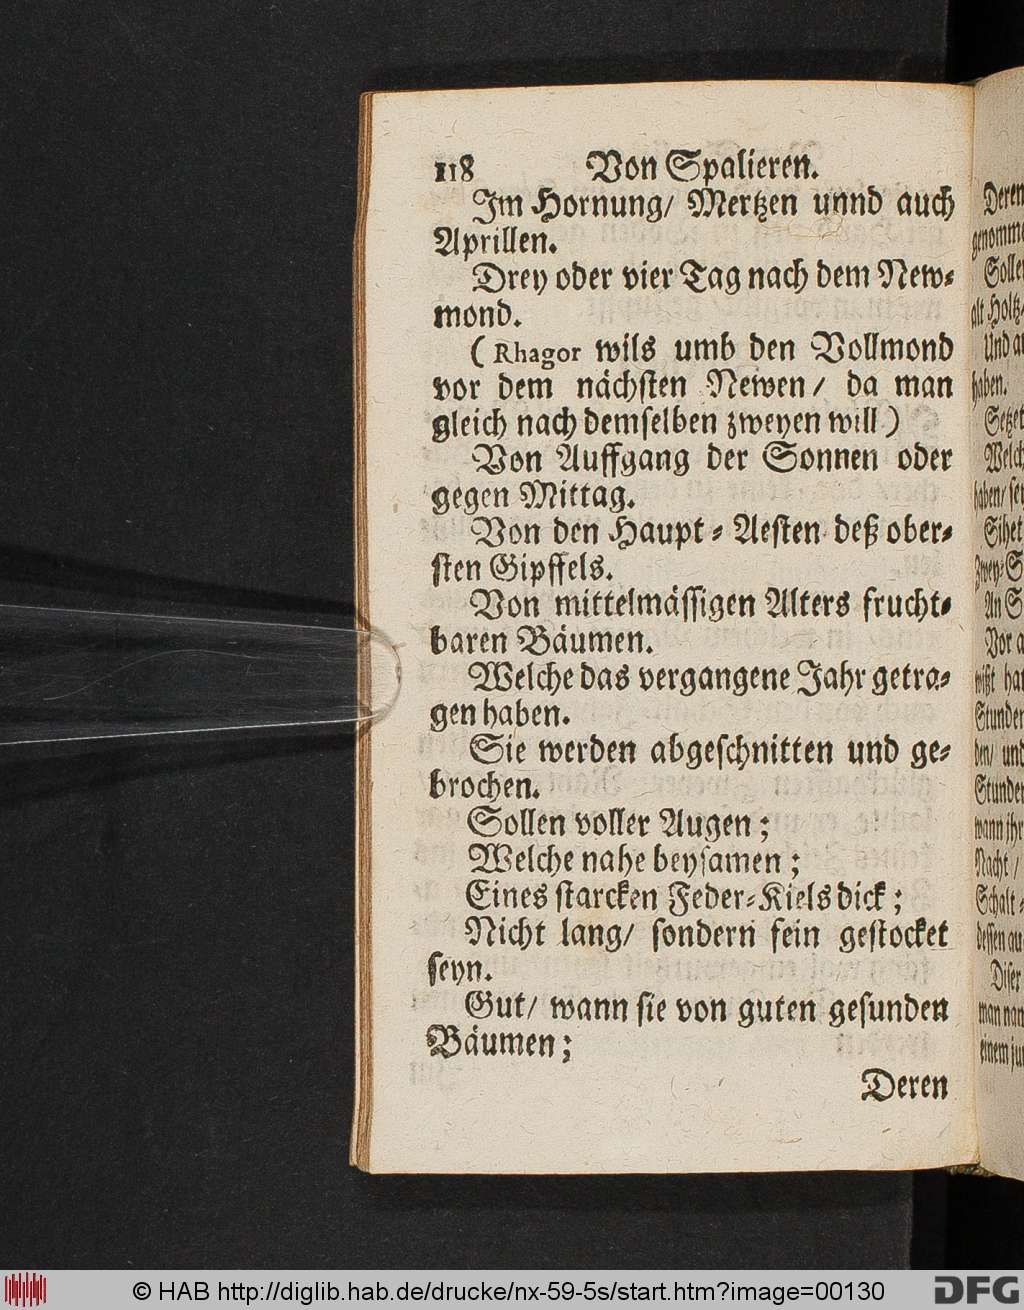 118 Von Spalieren.
Im Hornung/ Mertzen unnd auch
Aprillen.
Drey oder vier Tag nach dem New⸗
mond.
(Rhagor wils umb den Vollmond
vor dem nächsten Newen/ da man
gleich nach demselben zweyen will)
Von Auffgang der Sonnen oder
gegen Mittag.
Von den Haupt⸗Aesten deß ober⸗
sten Gipffels.
Von mittelmässigen Alters frucht⸗
baren Bäumen.
Welche das vergangene Jahr getra⸗
gen haben.
Sie werden abgeschnitten und ge⸗
brochen.
Sollen voller Augen;
Welche nahe beysamen;
Eines starcken Feder⸗Kiels dick;
Nicht lang/ sondern fein gestocket
seyn.
Gut/ wann sie von guten gesunden
Bäumen;
Deren
Deren
genomme
Solle
alt Holtz/
Und au
haben.
Setzet
Welch
haben/ sey
Sihet
Zwey⸗S
An S
Vor a
wißt hat
Stunden
den/ und
Stunden
wann ihr
Nacht/
Schalt⸗
dessen au
Diser
man nan
einem jun
© HAB http://diglib.hab.de/drucke/nx-59-5s/start.htm?image=00130
DFG